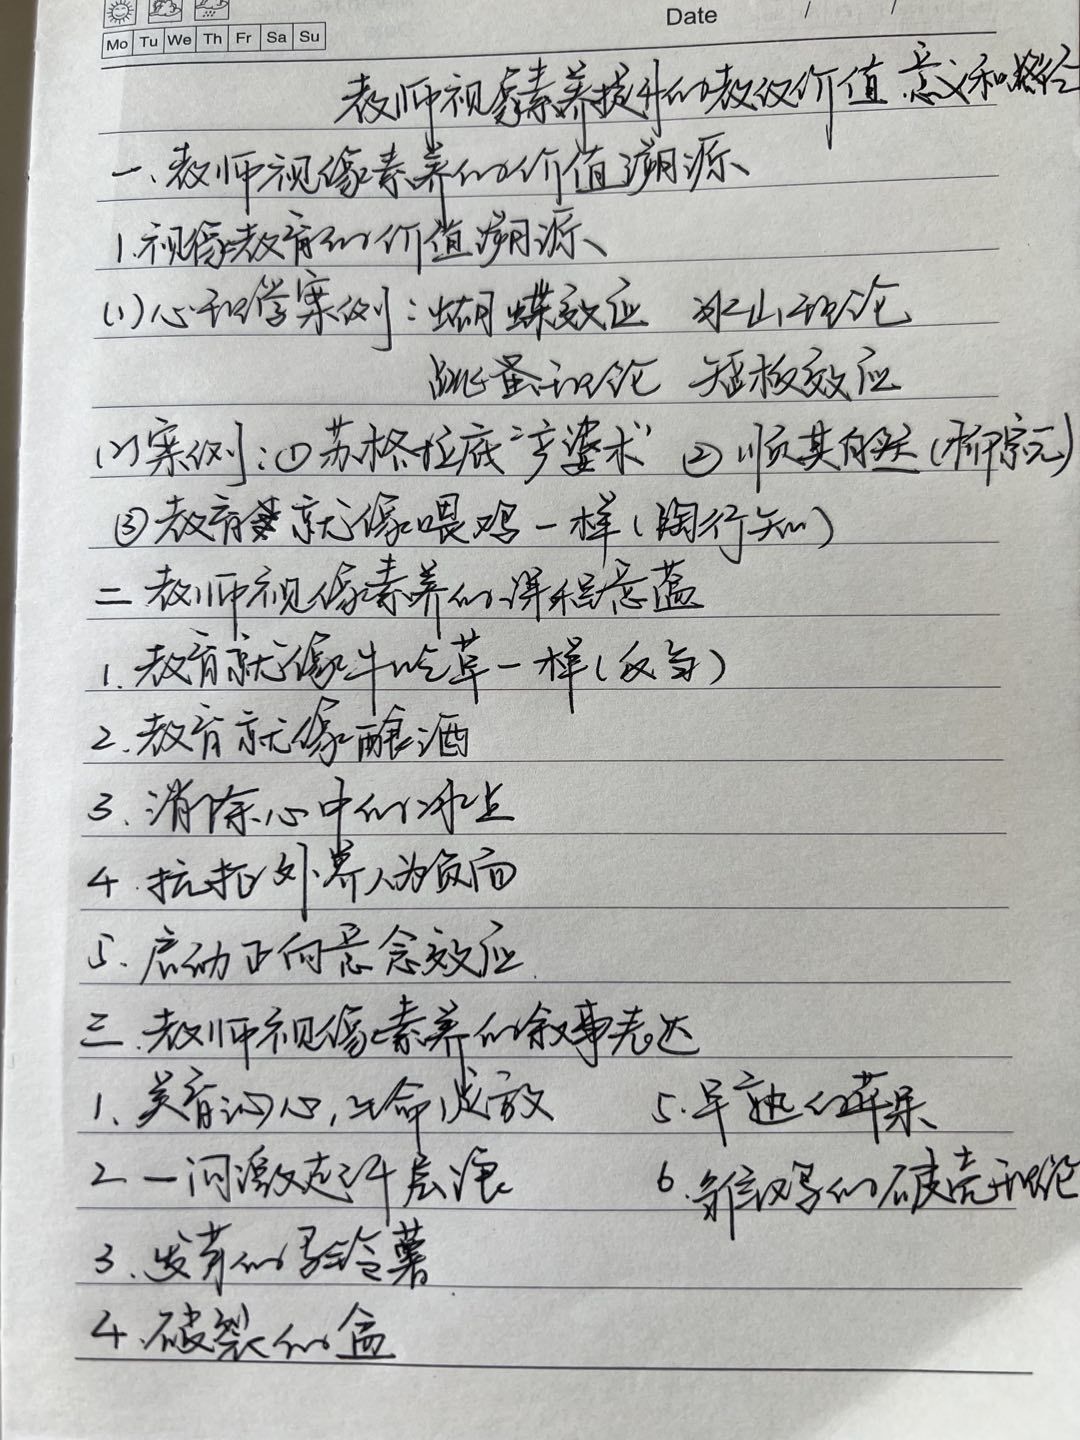 Date / /
Mo Tu We Th Fr Sa Su
教师视像素养提升的教育价值意义和路径
一、教师视像素养的价值溯源、
1.视像教育的价值溯源、
(1)心理学案例:蝴蝶效应 冰山理论
跳蚤理论 短板效应
(2)案例:①苏格拉底“产婆术” ②顺其自然(柳宗元)
③教育就像喂鸡一样(陶行知)
二 教师视像素养的课程意蕴
1.教育就像牛吃草一样(反刍)
2.教育就像酿酒
3.消除心中的冰点
4.抗拒外界人为负面
5.启动正向意念效应.
三.教师视像素养的叙事表达
1.美育沁心,生命绽放 5.早熟的苹果
2.一问激起千层浪 6.雏鸡的破壳理论
3.发芽的马铃薯
4.破裂的盒